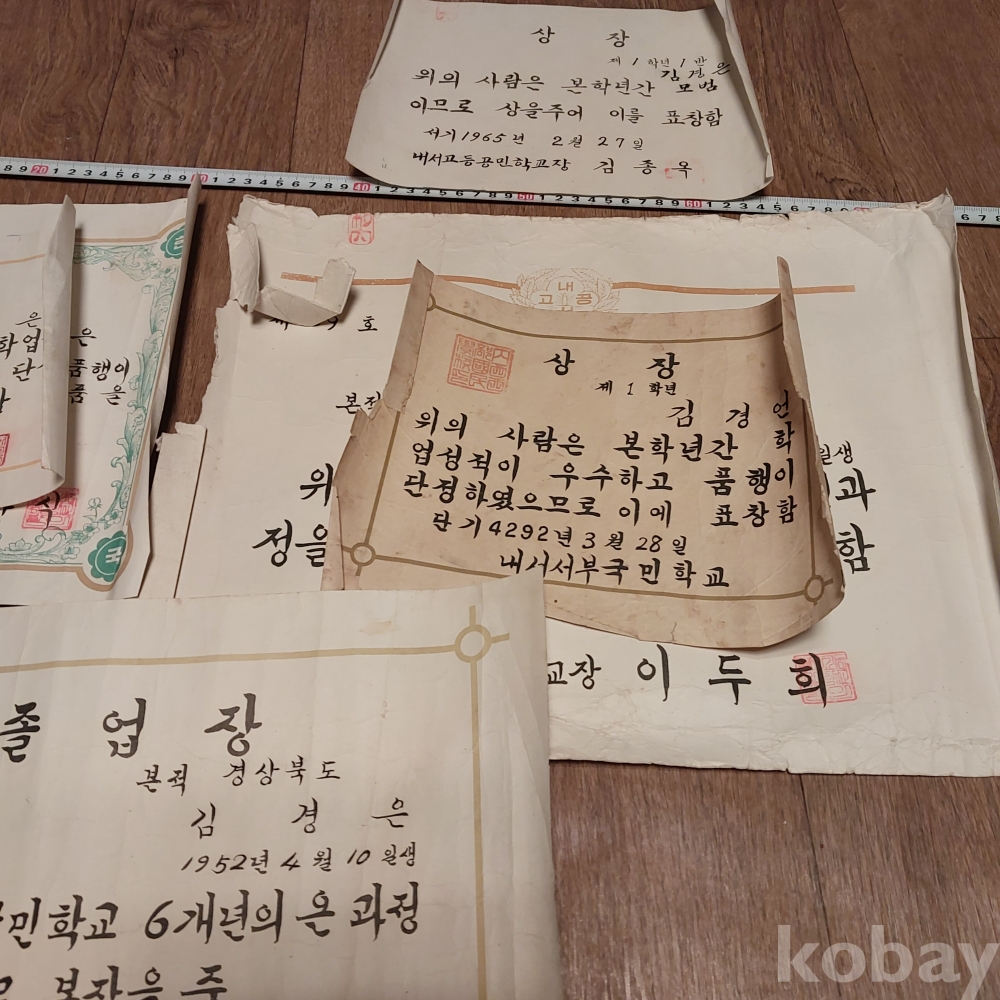 상 장
제 1 학년 1 반
김 경 은
위의 사람은 본학년간 모범
이므로 상을주어 이를 표창함
서기 1965년 2월 27일
내서고등공민학교장 김 종 옥
내
고 공
호
본적
일생
위
과
정을
함
교장 이 두 희
상 장
제 1 학년
김 경 언
위의 사람은 본학년간 학
업성적이 우수하고 품행이
단정하였으므로 이에 표창함
단기 4292년 3월 28일
내서서부국민학교
은
학업
은
단
품행이
품을
식
국
졸 업 장
본적 경상북도
김 경 은
1952년 4월 10일생
민학교 6개년의 온 과정
본장을 주
kobay